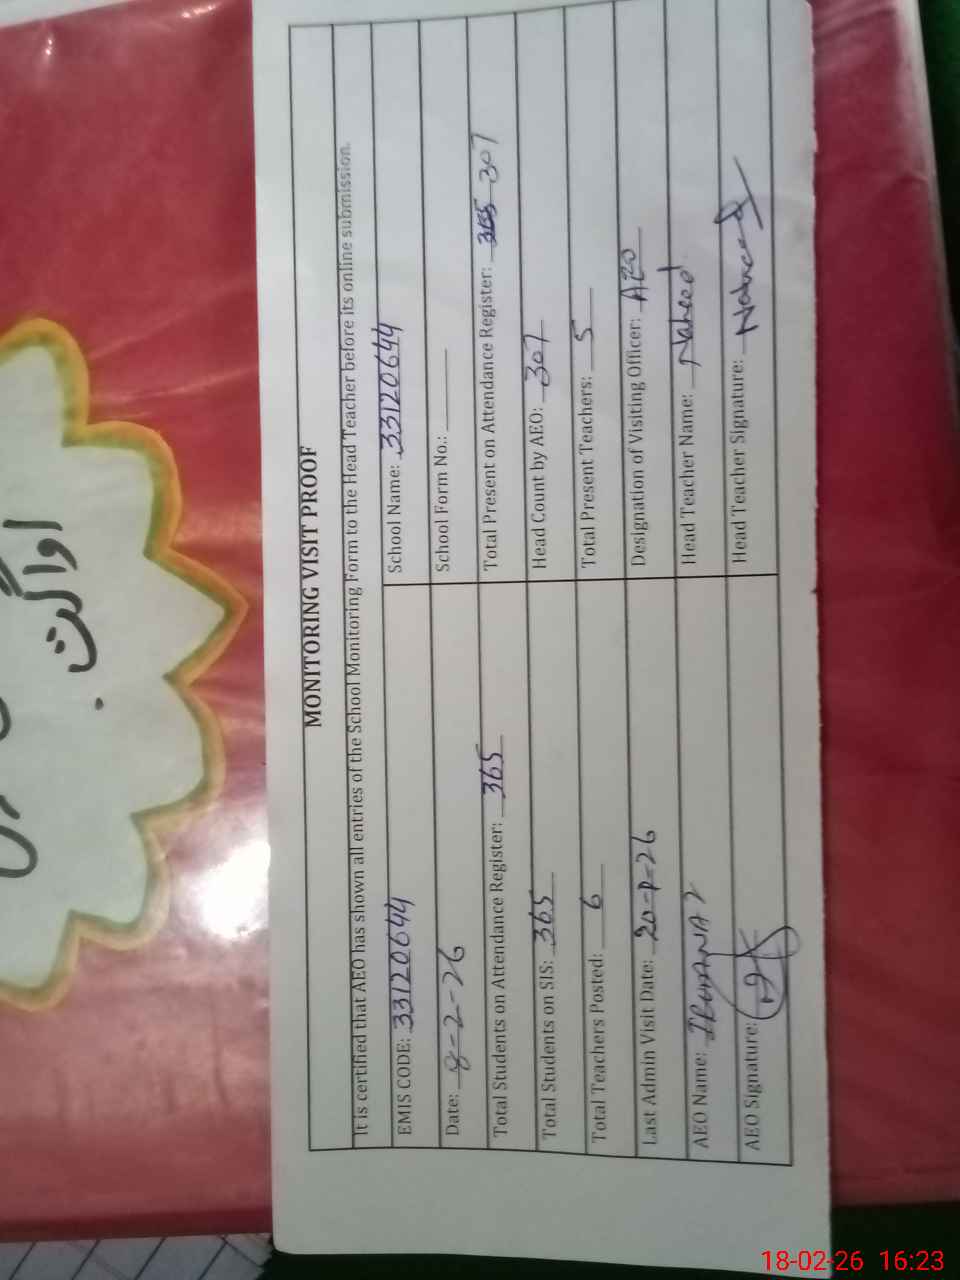 MONITORING VISIT PROOF
It is certified that AEO has shown all entries of the School Monitoring Form to the Head Teacher before its online submission.
EMIS CODE: 33120644 School Name: 33120644
Date: 8-2-26 School Form No.:
Total Students on Attendance Register: 365 Total Present on Attendance Register: 365 307
Total Students on SIS: 365 Head Count by AEO: 307
Total Teachers Posted: 6 Total Present Teachers: 5
Last Admin Visit Date: 20-1-26 Designation of Visiting Officer: AEO
AEO Name: Head Teacher Name: Naheed
AEO Signature: Head Teacher Signature: Naheed
اواگت
18-02-26 16:23